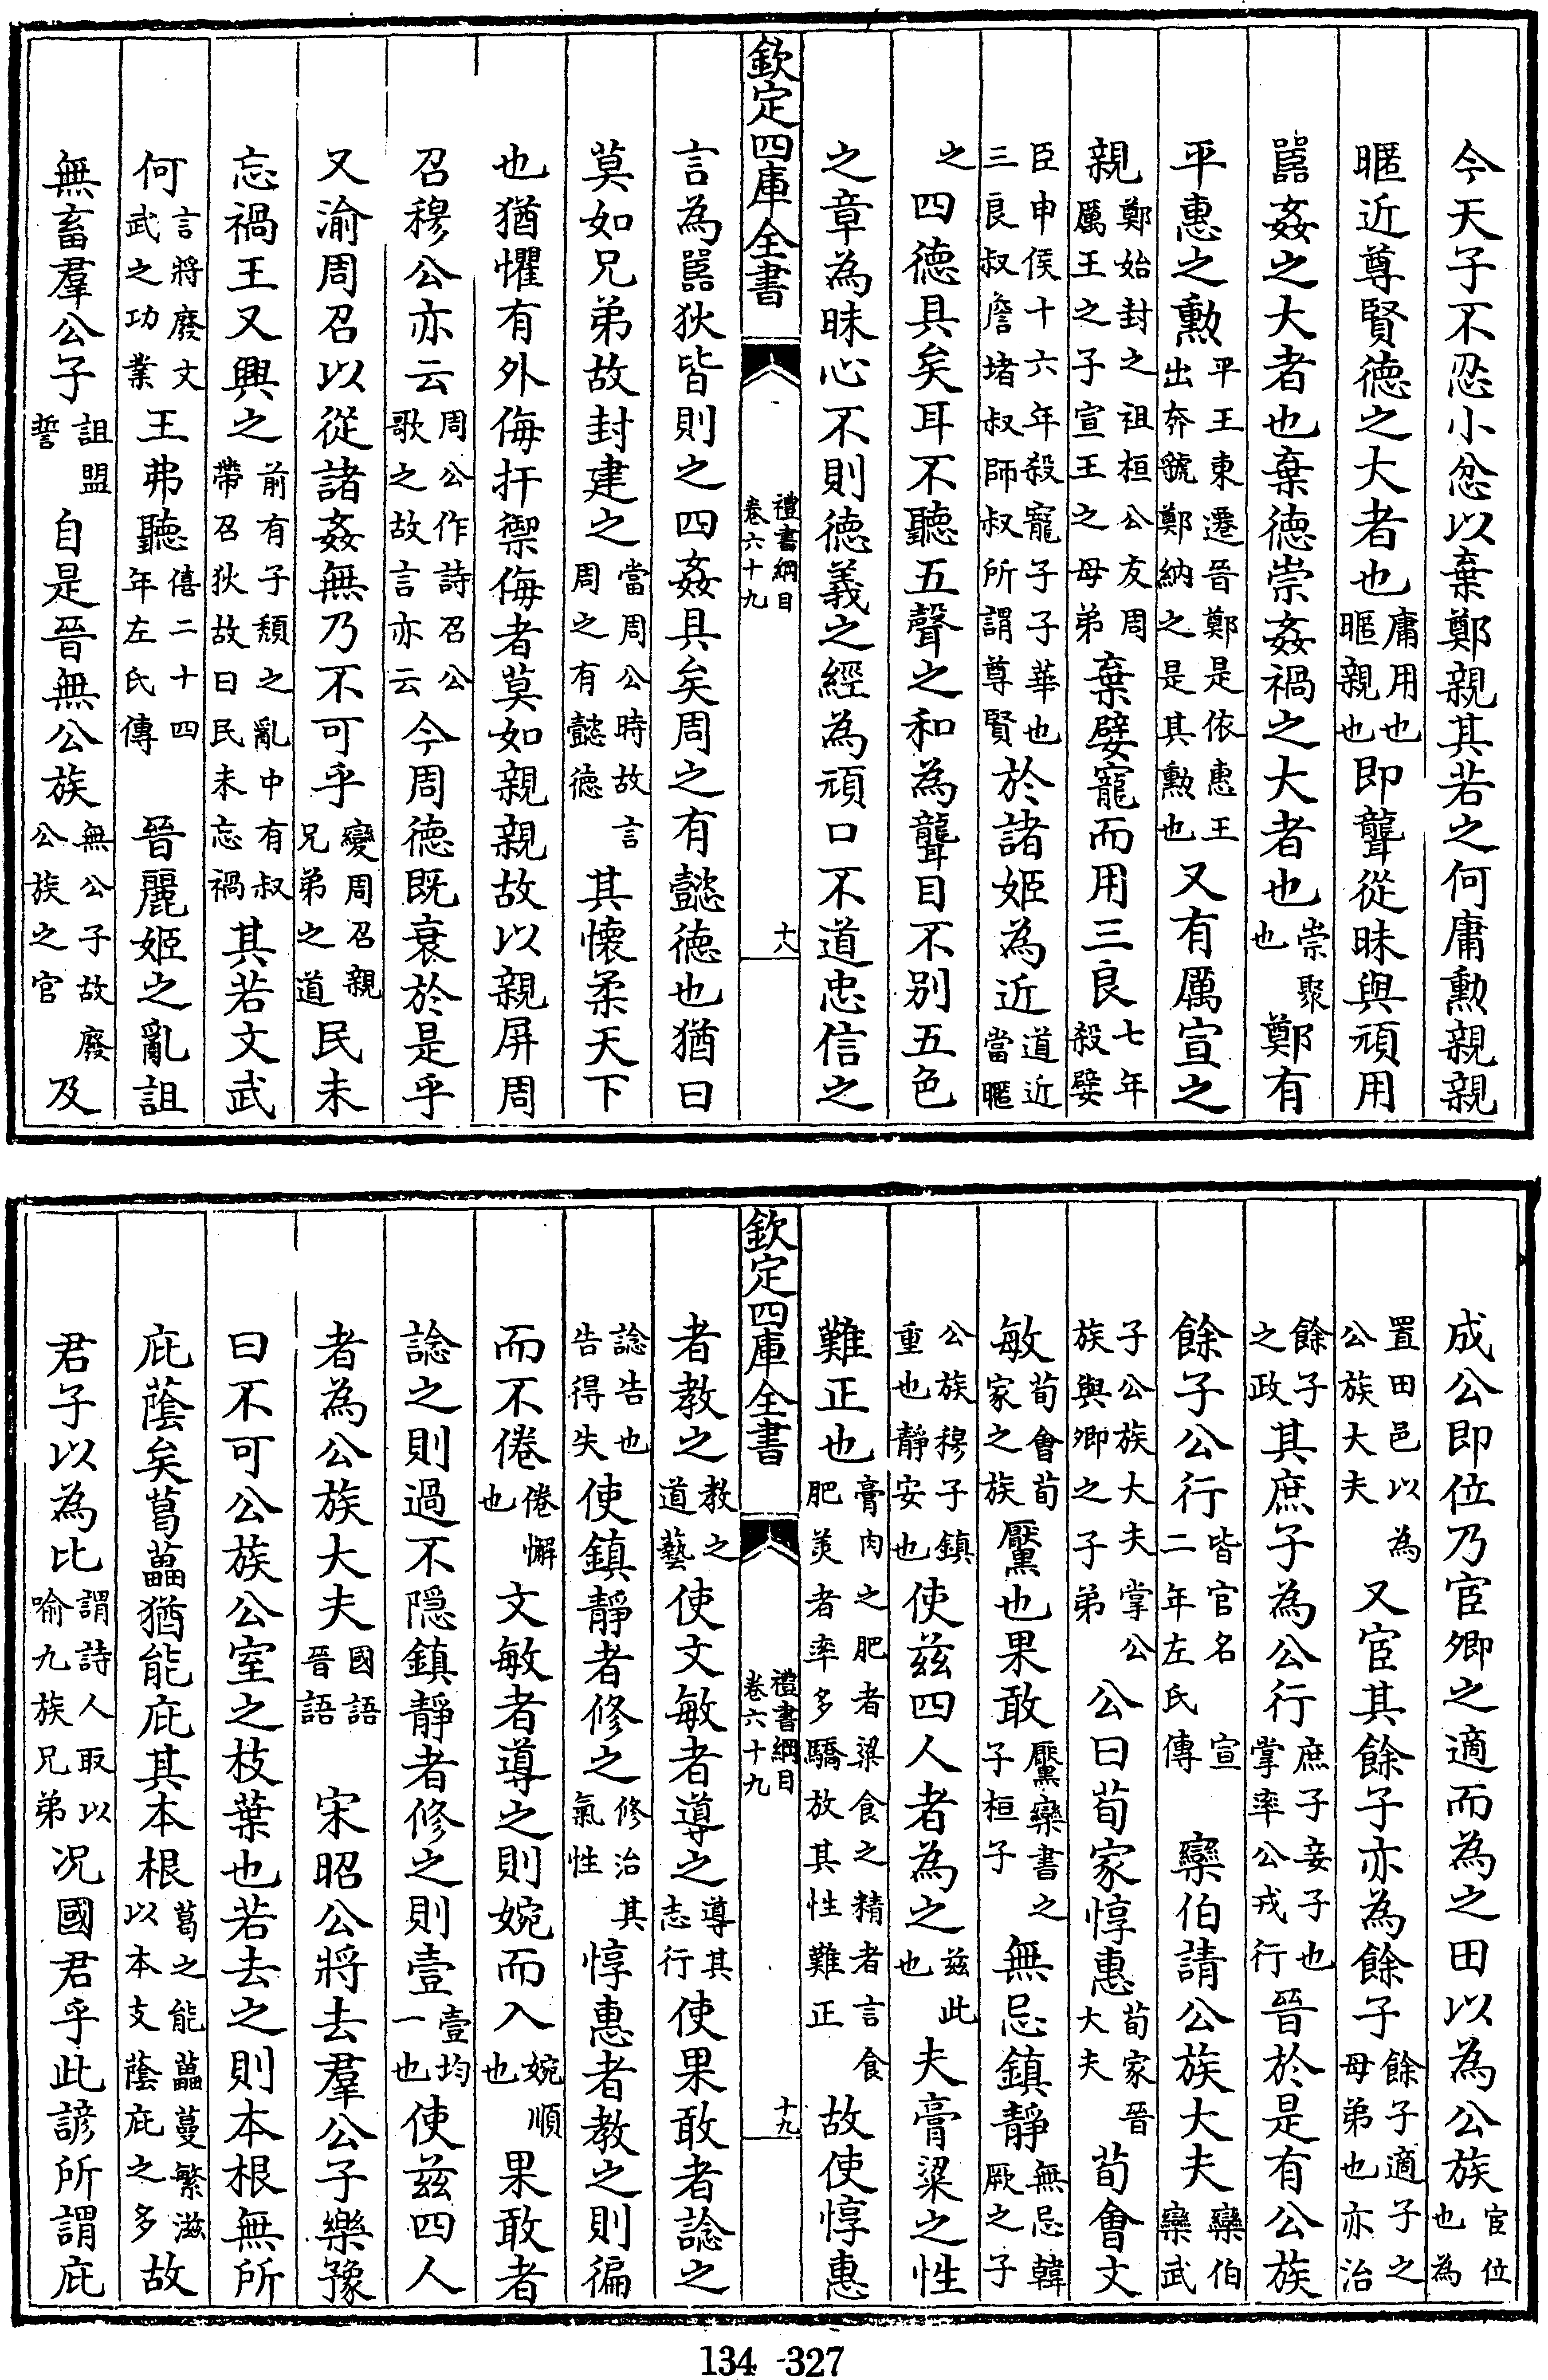 今天子不忍小忿以棄鄭親其若之何庸勲親親
暱近尊賢徳之大者也庸用也暱親也即聾從昧與頑用
嚚姦之大者也棄徳崇姦禍之大者也崇聚也鄭有
平惠之勲平王東遷晉鄭是依惠王出奔虢鄭納之是其勲也又有厲宣之
親鄭始封之祖桓公友周厲王之子宣王之母弟棄嬖寵而用三良七年殺嬖
臣申侯十六年殺寵子子華也三良叔詹堵叔師叔所謂尊賢於諸姬為近道近當暱
之四徳具矣耳不聽五聲之和為聾目不別五色
之章為昧心不則徳義之經為頑口不道忠信之
欽定四庫全書 禮書綱目卷六十九 十八
言為嚚狄皆則之四姦具矣周之有懿徳也猶曰
莫如兄弟故封建之當周公時故言周之有懿徳其懷柔天下
也猶懼有外侮扞禦侮者莫如親親故以親屏周
召穆公亦云周公作詩召公歌之故言亦云今周徳既衰於是乎
又渝周召以從諸姦無乃不可乎變周召親兄弟之道民未
忘禍王又興之前有子頽之亂中有叔帶召狄故曰民未忘禍其若文武
何言將廢文武之功業王弗聽僖二十四年左氏傳 晉麗姬之亂詛
無畜羣公子詛盟誓自是晉無公族無公子故廢公族之官及
成公即位乃宦卿之適而為之田以為公族宦位也為
置田邑以為公族大夫又宦其餘子亦為餘子餘子適子之母弟也亦治
餘子之政其庶子為公行庶子妾子也掌率公戎行晉於是有公族
餘子公行皆官名宣二年左氏傳 欒伯請公族大夫欒伯欒武
子公族大夫掌公族與卿之子弟公曰荀家惇惠荀家晉大夫荀會文
敏荀會荀家之族黶也果敢黶欒書之子桓子無忌鎮靜無忌韓厥之子
公族穆子鎮重也靜安也使兹四人者為之兹此也夫膏粱之性
難正也膏肉之肥者粱食之精者言食肥美者率多驕放其性難正故使惇惠
欽定四庫全書 禮書綱目卷六十九 十九
者教之教之道藝使文敏者導之導其志行使果敢者諗之
諗告也告得失使鎮靜者修之修治其氣性惇惠者教之則徧
而不倦倦懈也文敏者導之則婉而入婉順也果敢者
諗之則過不隠鎮靜者修之則壹壹均一也使兹四人
者為公族大夫國語晉語 宋昭公將去羣公子樂豫
曰不可公族公室之枝葉也若去之則本根無所
庇蔭矣葛藟猶能庇其本根葛之能藟蔓繁滋以本支蔭庇之多故
君子以為比謂詩人取以喻九族兄弟况國君乎此諺所謂庇
134-327